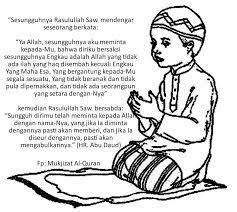 "Sesungguhnya Rasulullah Saw. mendengar
seseorang berkata:
"Ya Allah, sesungguhnya aku meminta
kepada-Mu, bahwa diriku bersaksi
sesungguhnya Engkau adalah Allah yang tidak
ada ilah yang haq disembah kecuali Engkau
Yang Maha Esa, Yang bergantung kepada-Mu
segala sesuatu, Yang tidak beranak dan tidak
pula dipernakkan, dan tidak ada seorangpun
yang setara dengan-Nya"
kemudian Rasulullah Saw. bersabda:
"Sungguh dirimu telah meminta kepada Allah
dengan nama-Nya, yang jika la diminta
dengannya pasti akan memberi, dan jika la
diseur dengannya, pasti akan
mengabulkannya." (HR. Abu Daud)
Fp: Mukjizat Al-Quran